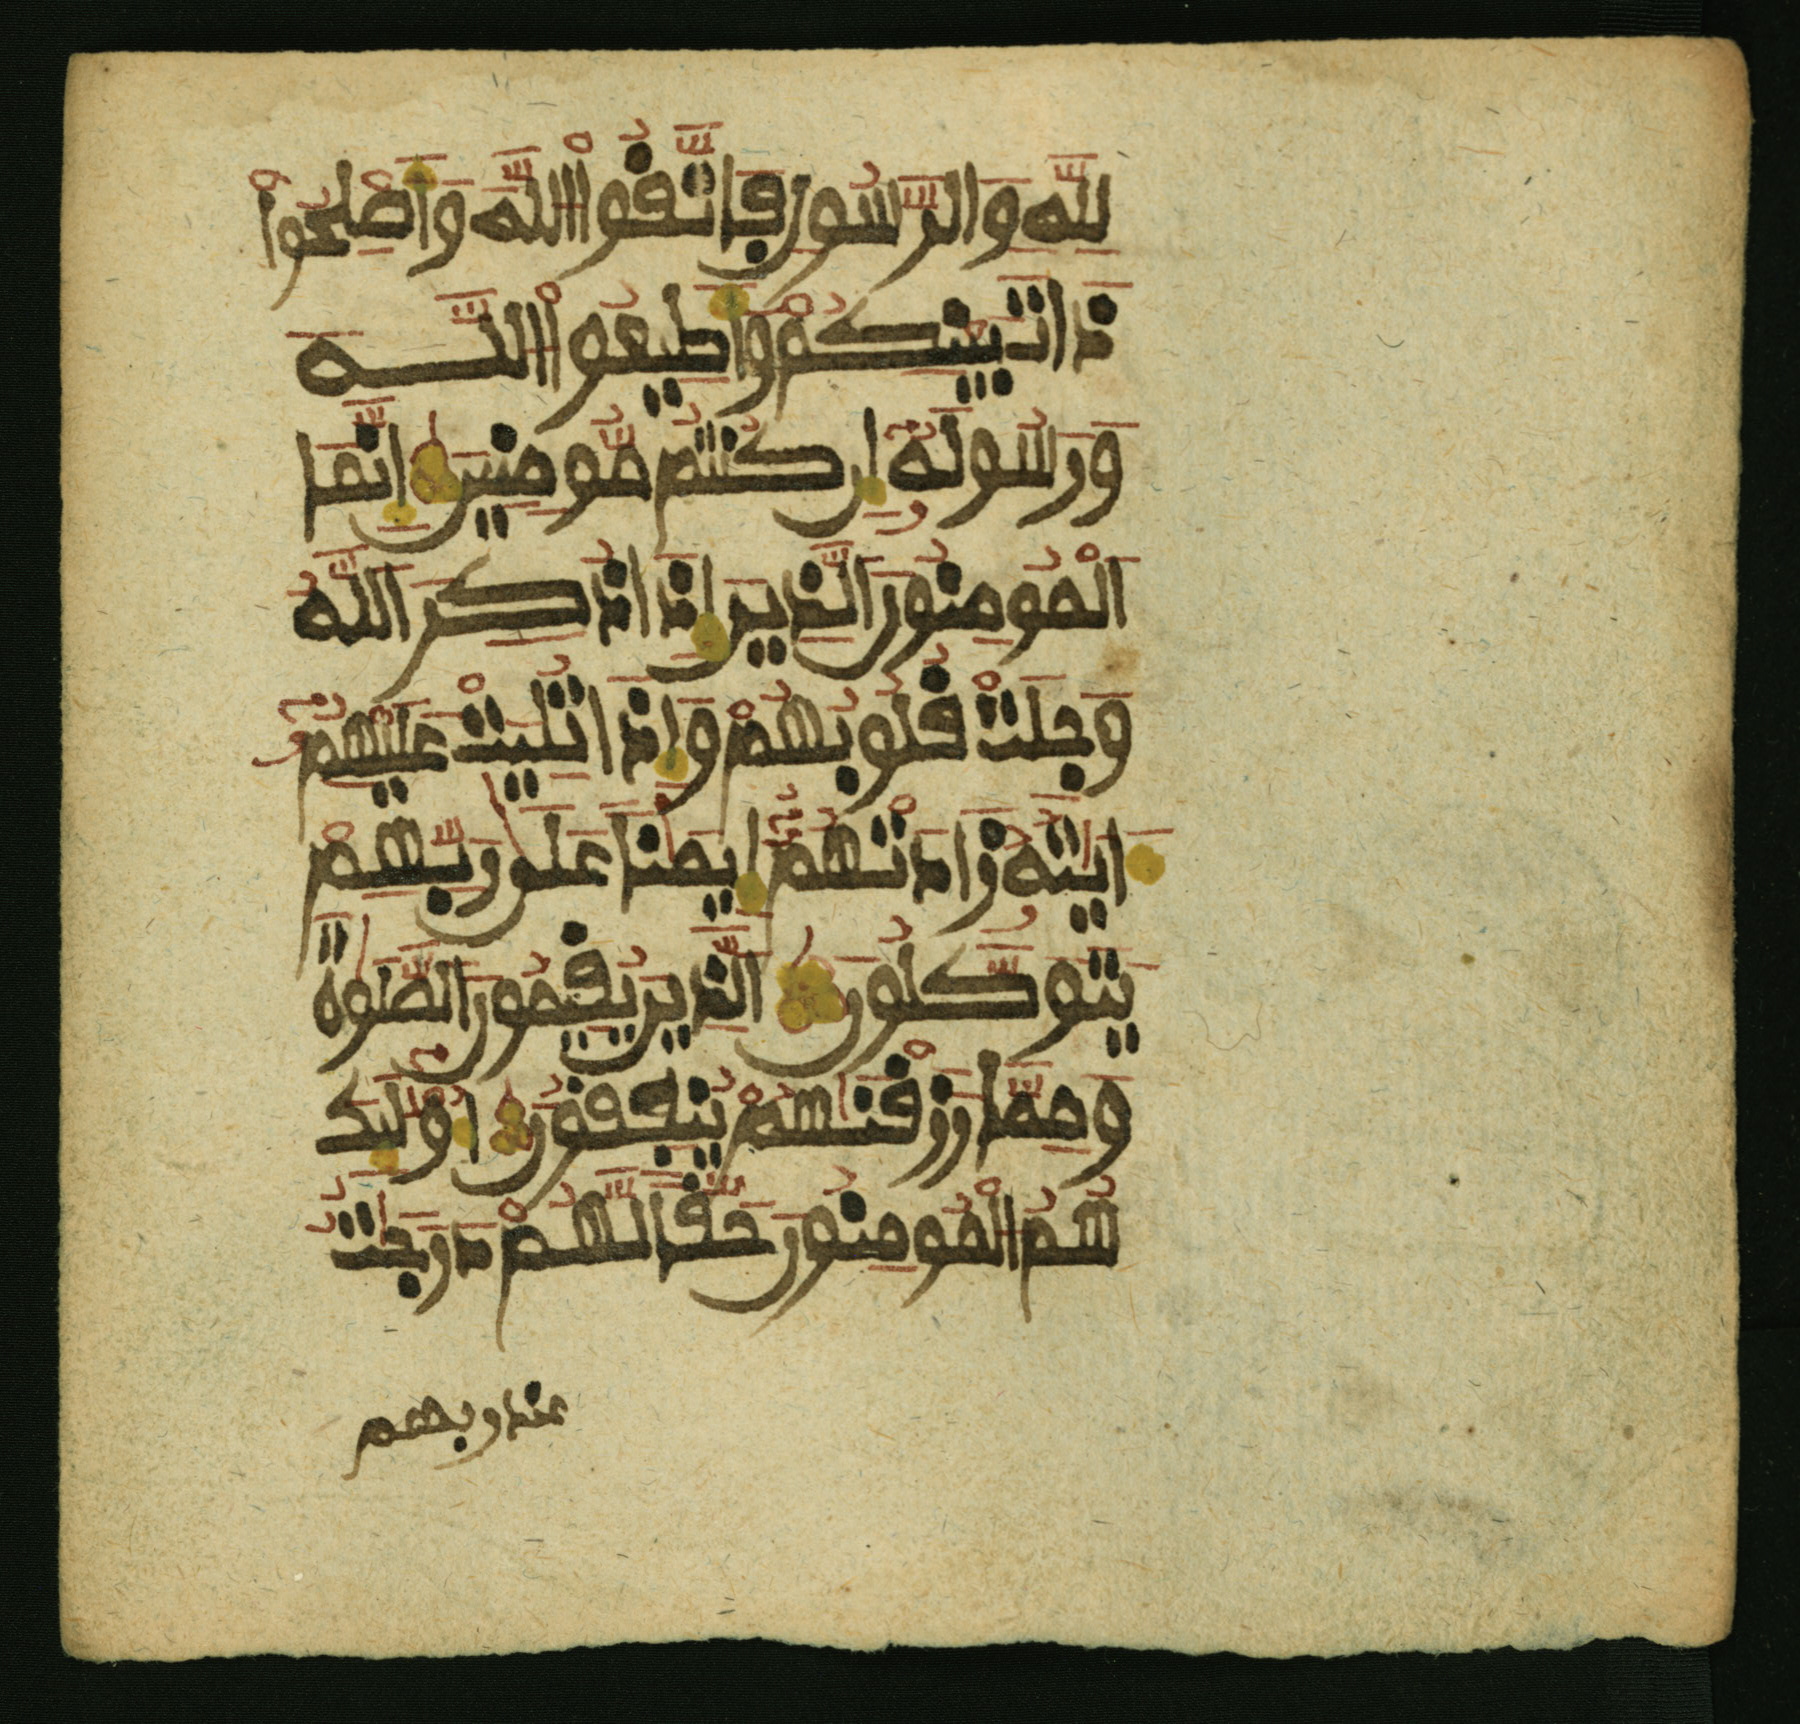 لِلهِ وَالرَّسُولِ فَاتَّقُوا اللَّهَ وَأَصْلِحُوا
ذَاتَ بَيْنِكُمْ وَأَطِيعُوا اللَّـــهَ
وَرَسُولَهُ إِن كُنتُم مُّومِنِينَ إِنَّمَا
الْمُومِنُونَ الَّذِينَ إِذَا ذُكِرَ اللَّهُ
وَجِلَتْ قُلُوبُهُمْ وَإِذَا تُلِيَتْ عَلَيْهِمُ
ءَايَتُهُ زَادَتْهُمُ إِيمَنًا عَلَى رَبِّهِمْ
يَتَوَكَّلُونَ الَّذِينَ يُقِيمُونَ الصَّلَوةَ
وَمِمَّا رَزَقْنَهُمْ يُنفِقُونَ أُولَئِكَ
هُمُ الْمُومِنُونَ حَقًّا لَّهُمْ دَرَجَتٌ
عند ربهم